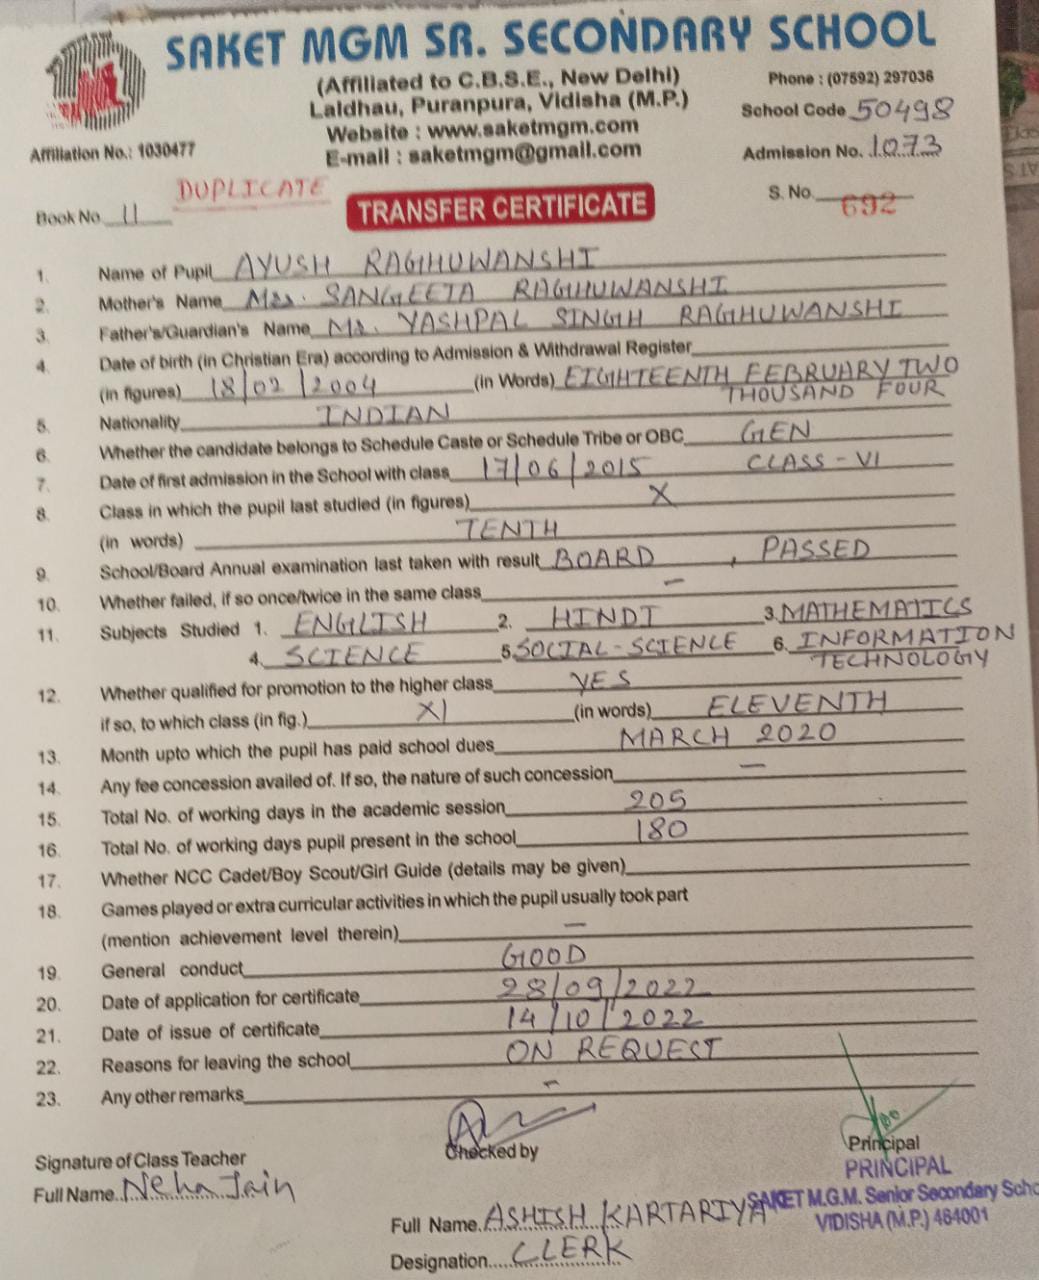 SAKET MGM SR. SECONDARY SCHOOL
(Affiliated to C.B.S.E., New Delhi)
Phone : (07592) 297036
Laldhau, Puranpura, Vidisha (M.P.)
School Code 50498
Website : www.saketmgm.com
Affiliation No.: 1030477
E-mail : saketmgm@gmail.com
Admission No. 1073
DUPLICATE
Book No. 11
TRANSFER CERTIFICATE
S. No. 692
1. Name of Pupil AYUSH RAGHUWANSHI
2. Mother's Name Mrs. SANGEETA RAGHUWANSHI
3. Father's/Guardian's Name Mr. YASHPAL SINGH RAGHUWANSHI
4. Date of birth (in Christian Era) according to Admission & Withdrawal Register
(in figures) 18/02/2004 (in Words) EIGHTEENTH FEBRUARY TWO
THOUSAND FOUR
5. Nationality INDIAN
6. Whether the candidate belongs to Schedule Caste or Schedule Tribe or OBC GEN
7. Date of first admission in the School with class 17/06/2015 CLASS-VI
8. Class in which the pupil last studied (in figures) X
(in words) TENTH
9. School/Board Annual examination last taken with result BOARD, PASSED
10. Whether failed, if so once/twice in the same class –
11. Subjects Studied 1. ENGLISH 2. HINDI 3. MATHEMATICS
4. SCIENCE 5. SOCIAL-SCIENCE 6. INFORMATION
TECHNOLOGY
12. Whether qualified for promotion to the higher class YES
if so, to which class (in fig.) XI (in words) ELEVENTH
13. Month upto which the pupil has paid school dues MARCH 2020
14. Any fee concession availed of. If so, the nature of such concession –
15. Total No. of working days in the academic session 205
16. Total No. of working days pupil present in the school 180
17. Whether NCC Cadet/Boy Scout/Girl Guide (details may be given)
18. Games played or extra curricular activities in which the pupil usually took part
(mention achievement level therein) –
19. General conduct GOOD
20. Date of application for certificate 28/09/2022
21. Date of issue of certificate 14/10/2022
22. Reasons for leaving the school ON REQUEST
23. Any other remarks –
Signature of Class Teacher
Checked by
Principal
Full Name. Neha Jain
PRINCIPAL
SAKET M.G.M. Senior Secondary Scho
Full Name. ASHISH KARTARIYA
VIDISHA (M.P.) 464001
Designation. CLERK